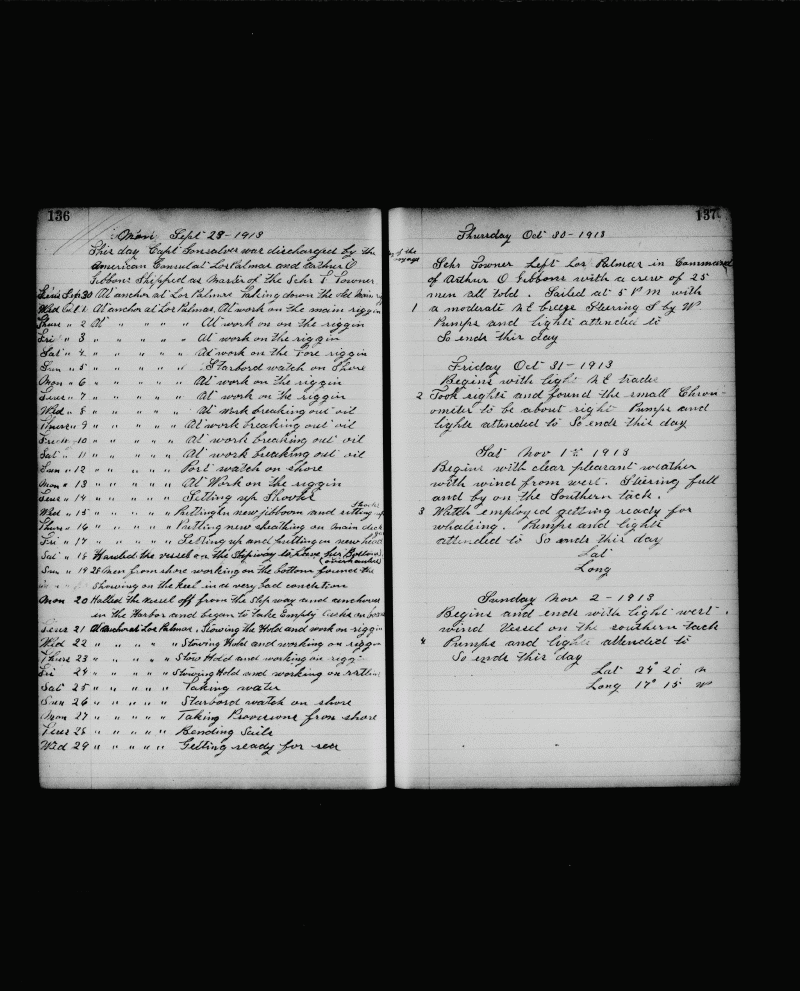 136
Mon Sept 29 - 1913
This day Capt Gonsalves was discharged by the
American Consul at Los Palmas and Arthur O
Gibbons Shipped as Master of the Schr T Towner
30 At anchor at Los Palmas Taking down the old main
Wed Oct 1 At anchor at Los Palmas, At work on the main riggin
Thurs " 2 At " " " " At work on on the riggin
Fri " 3 " " " " " At work on the riggin
Sat " 4 " " " " " At work on the Fore riggin
Sun " 5 " " " " " Starbord watch on Shore
Mon " 6 " " " " " At work on the riggin
Tues " 7 " " " " " At work on the riggin
Wed " 8 " " " " " At work breaking out oil
Thurs " 9 " " " " " At work breaking out oil
Fri " 10 " " " " " At work breaking out oil
Sat " 11 " " " " " At work breaking out oil
Sun " 12 " " " " " Port watch on shore
Mon " 13 " " " " " At Work on the riggin
Tues " 14 " " " " " Setting up Shooks
Wed " 15 " " " " " Putting in new jibboom and setting up Shooks
Thurs " 16 " " " " " Putting new sheathing on main deck
Fri " 17 " " " " " Setting up and putting on new head
Sat " 18 Hauled the vessel on the Slipway to have her Bottom
(overhauled)
Sun " 19 28 Men from shore working on the bottom found the
Showing on the keel in a very bad condition
Mon 20 Halled the vessel off from the Slip way and anchored
in the Harbor and began to take Empty casks
Tues 21 At anchor at Los Palmas, Stowing the Hold and work on riggin
Wed 22 " " " " " Stowing Hold and working on riggin
Thurs 23 " " " " " Stow Hold and working on rigg
Fri 24 " " " " " Stowing Hold and working on ratlin
Sat 25 " " " " " Taking water
Sun 26 " " " " " Starbord watch on shore
Mon 27 " " " " " Taking Provisions from shore
Tues 28 " " " " " Bending Sails
Wed 29 " " " " " Getting ready for sea
137
Thursday Oct 30 - 1913
of the voyage
Schr Towner Left Los Palmas in Command
of Arthur O Gibbons with a crew of 25
men all told. Sailed at 5 P M with
1 a moderate N E breeze Steering S by W
Pumps and lights attended to
So ends this day
Friday Oct 31 - 1913
Begins with light N E Trades
2 Took sights and found the small Chron-
ometer to be about right Pumps and
lights attended to So ends this day
Sat Nov 1st 1913
Begins with clear pleasant weather
with wind from west. Steering full
and by on the Southern tack.
3 Watch employed getting ready for
whaleing. Pumps and lights
attended to So ends this day
Lat
Long
Sunday Nov 2 - 1913
Begins and ends with light west
wind Vessel on the southern tack
4 Pumps and lights attended to
So ends this day
Lat 24° 20 N
Long 17° 15 W